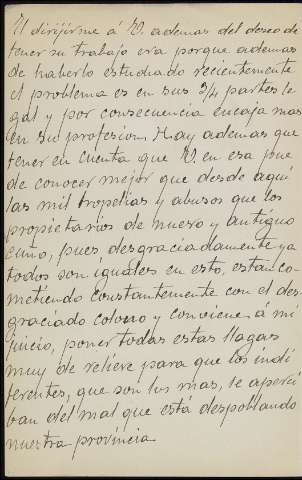 El dirijirme á V. ademas del deseo de
tener su trabajo era porque ademas
de haberlo estudiado recientemente
el problema es en sus 3/4 partes le
gal y por consecuencia encaja mas
en su profesion. Hay ademas que
tener en cuenta que V. en esa pue
de conocer mejor que desde aquí
las mil tropelias y abusos que los
propietarios de nuevo y antiguo
cuño, pues desgraciadamente ya
todos son iguales en esto, estan co-
metiendo constantemente con el des-
graciado colono y conviene á mi
juicio, poner todas estas llagas
muy de relieve para que los indi
ferentes, que son los mas, se aperci
ban del mal que está despoblando
nuestra provincia.